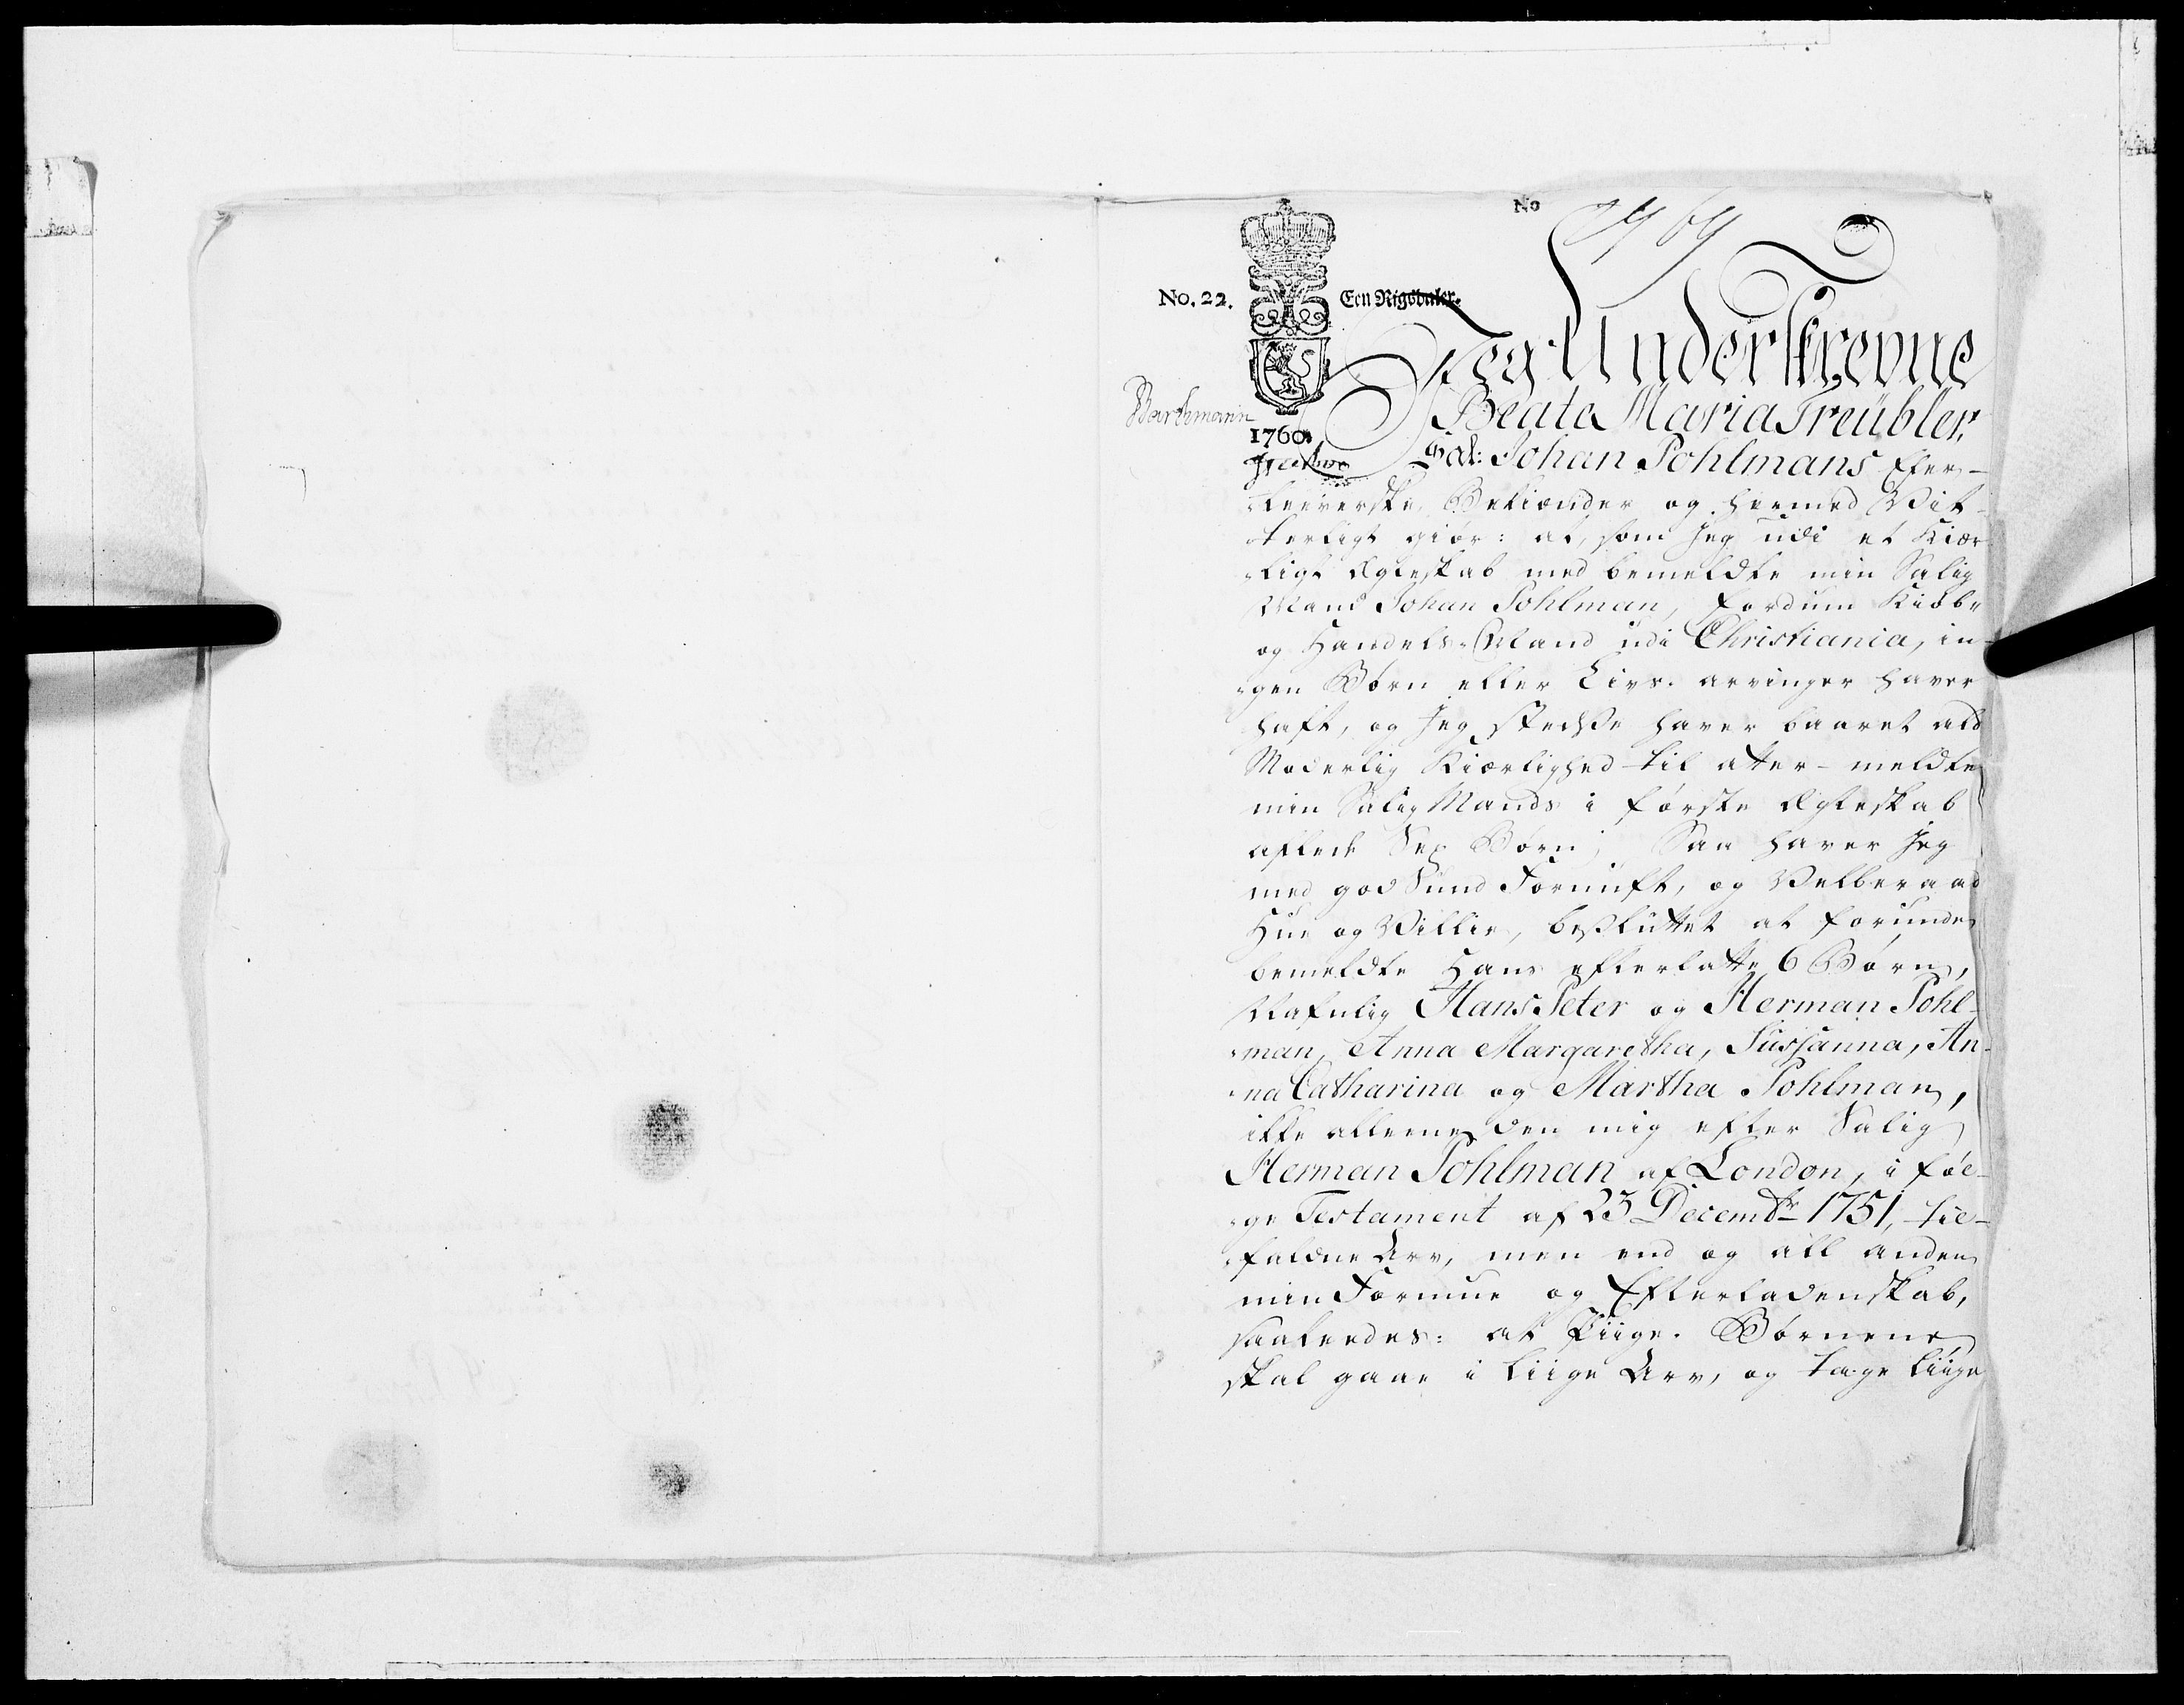 No
No. 22.
Een Rigsdaler.
Jeg Underskrevne
Beata Maria Treübler,
1760.
Sal: Johan Pohlmans Efter-
leeverske, Bekiænder og hermed Vit-
terligt giør: at, som Jeg udi et Kiær-
ligt Ægteskab med bemeldte min Salig
Mand Johan Pohlman, fordum Kiøb-
og Handels-Mand udi Christiania, in-
gen Børn eller Livs-arvinger haver
haft, og Jeg stedsse haver baaret ald
Moderlig Kiærlighed til atter-meldte
min Salig Mands i første Ægteskab
aflede Sex Børn; Saa haver Jeg
med god Sund Fornuft, og Velberaad
Hue og Villie, besluttet at forunde
bemeldte Hans efterlatte 6 Børn,
Nafnlig Hans Peter og Herman Pohl-
man, Anna Margaretha, Sussanna, An-
na Catharina og Martha Pohlman,
ikke alleene den mig efter Salig
Herman Pohlman af London, i føl-
ge Testament af 23 Decembr 1751, til-
faldne Arv, men end og all anden
min Formue og Efterladenskab,
saaleedes: at Piige-Børnene
skal gaae i liige Arv, og tage liige